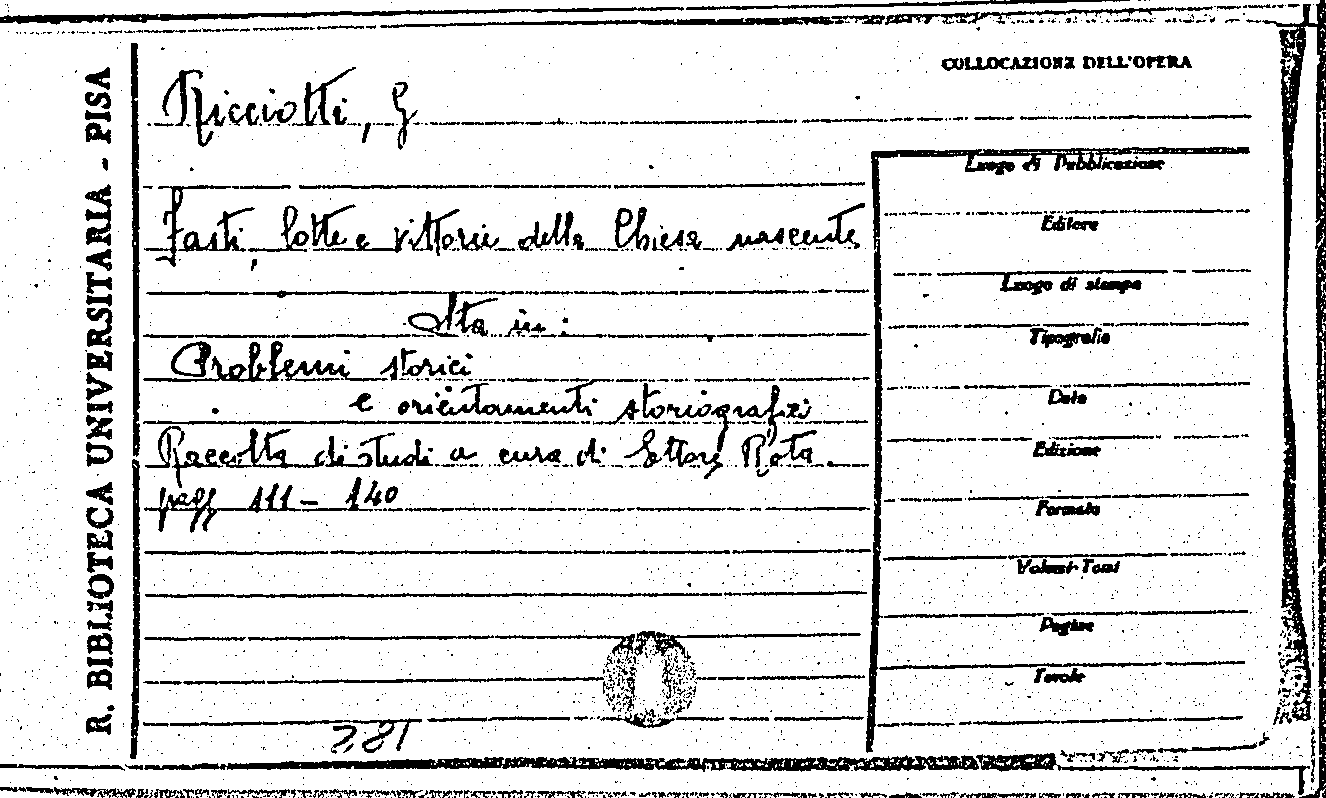 R. BIBLIOTECA UNIVERSITARIA - PISA
COLLOCAZIONE DELL'OPERA
Ricciotti, G
Fasti, lotte e vittorie della Chiesa nascente
Sta in:
Problemi storici
e orientamenti storiografici
Raccolta di studi a cura di Ettore Rota.
pagg 111 - 140
Luogo di Pubblicazione
Editore
Luogo di stampa
Tipografia
Data
Edizione
Formato
Volumi-Tomi
Pagine
Tavole